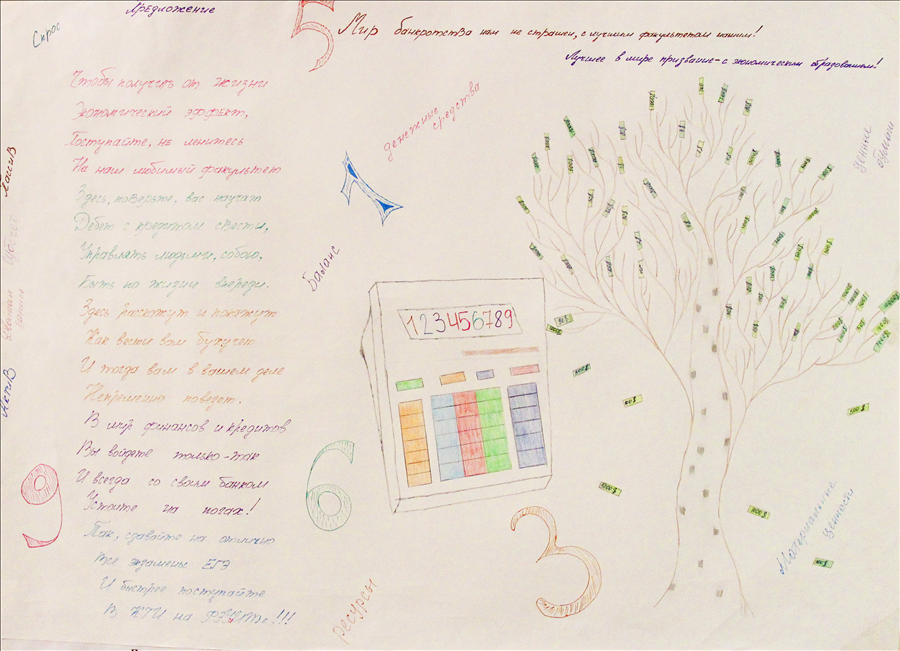 Спрос
Предложение
5
Мир банкротства нам не страшен, с лучшим факультетом нашим!
Лучшее в мире призвание - с экономическим образованием!
Чтобы получить от жизни
Экономический эффект,
Поступайте, не ленитесь
На наш любимый факультет
Здесь, поверьте, вас научат
Дебет с кредитом свести,
Управлять людьми, собою,
Быть по жизни впереди.
Здесь расскажут и покажут
Как вести вам бухучет
И тогда вам в вашем деле
Непременно повезет.
В мир финансов и кредитов
Вы войдете только-так
И всегда со своим банком
Устоите на ногах!
Так, сдавайте на отлично
Все экзамены ЕГЭ
И быстрее поступайте
В КТИ на
Пассив
Актив
9
денежные
средства
1
Баланс
123456789
6
3
ресурсы
ценные
бумаги
Материальные
ценности